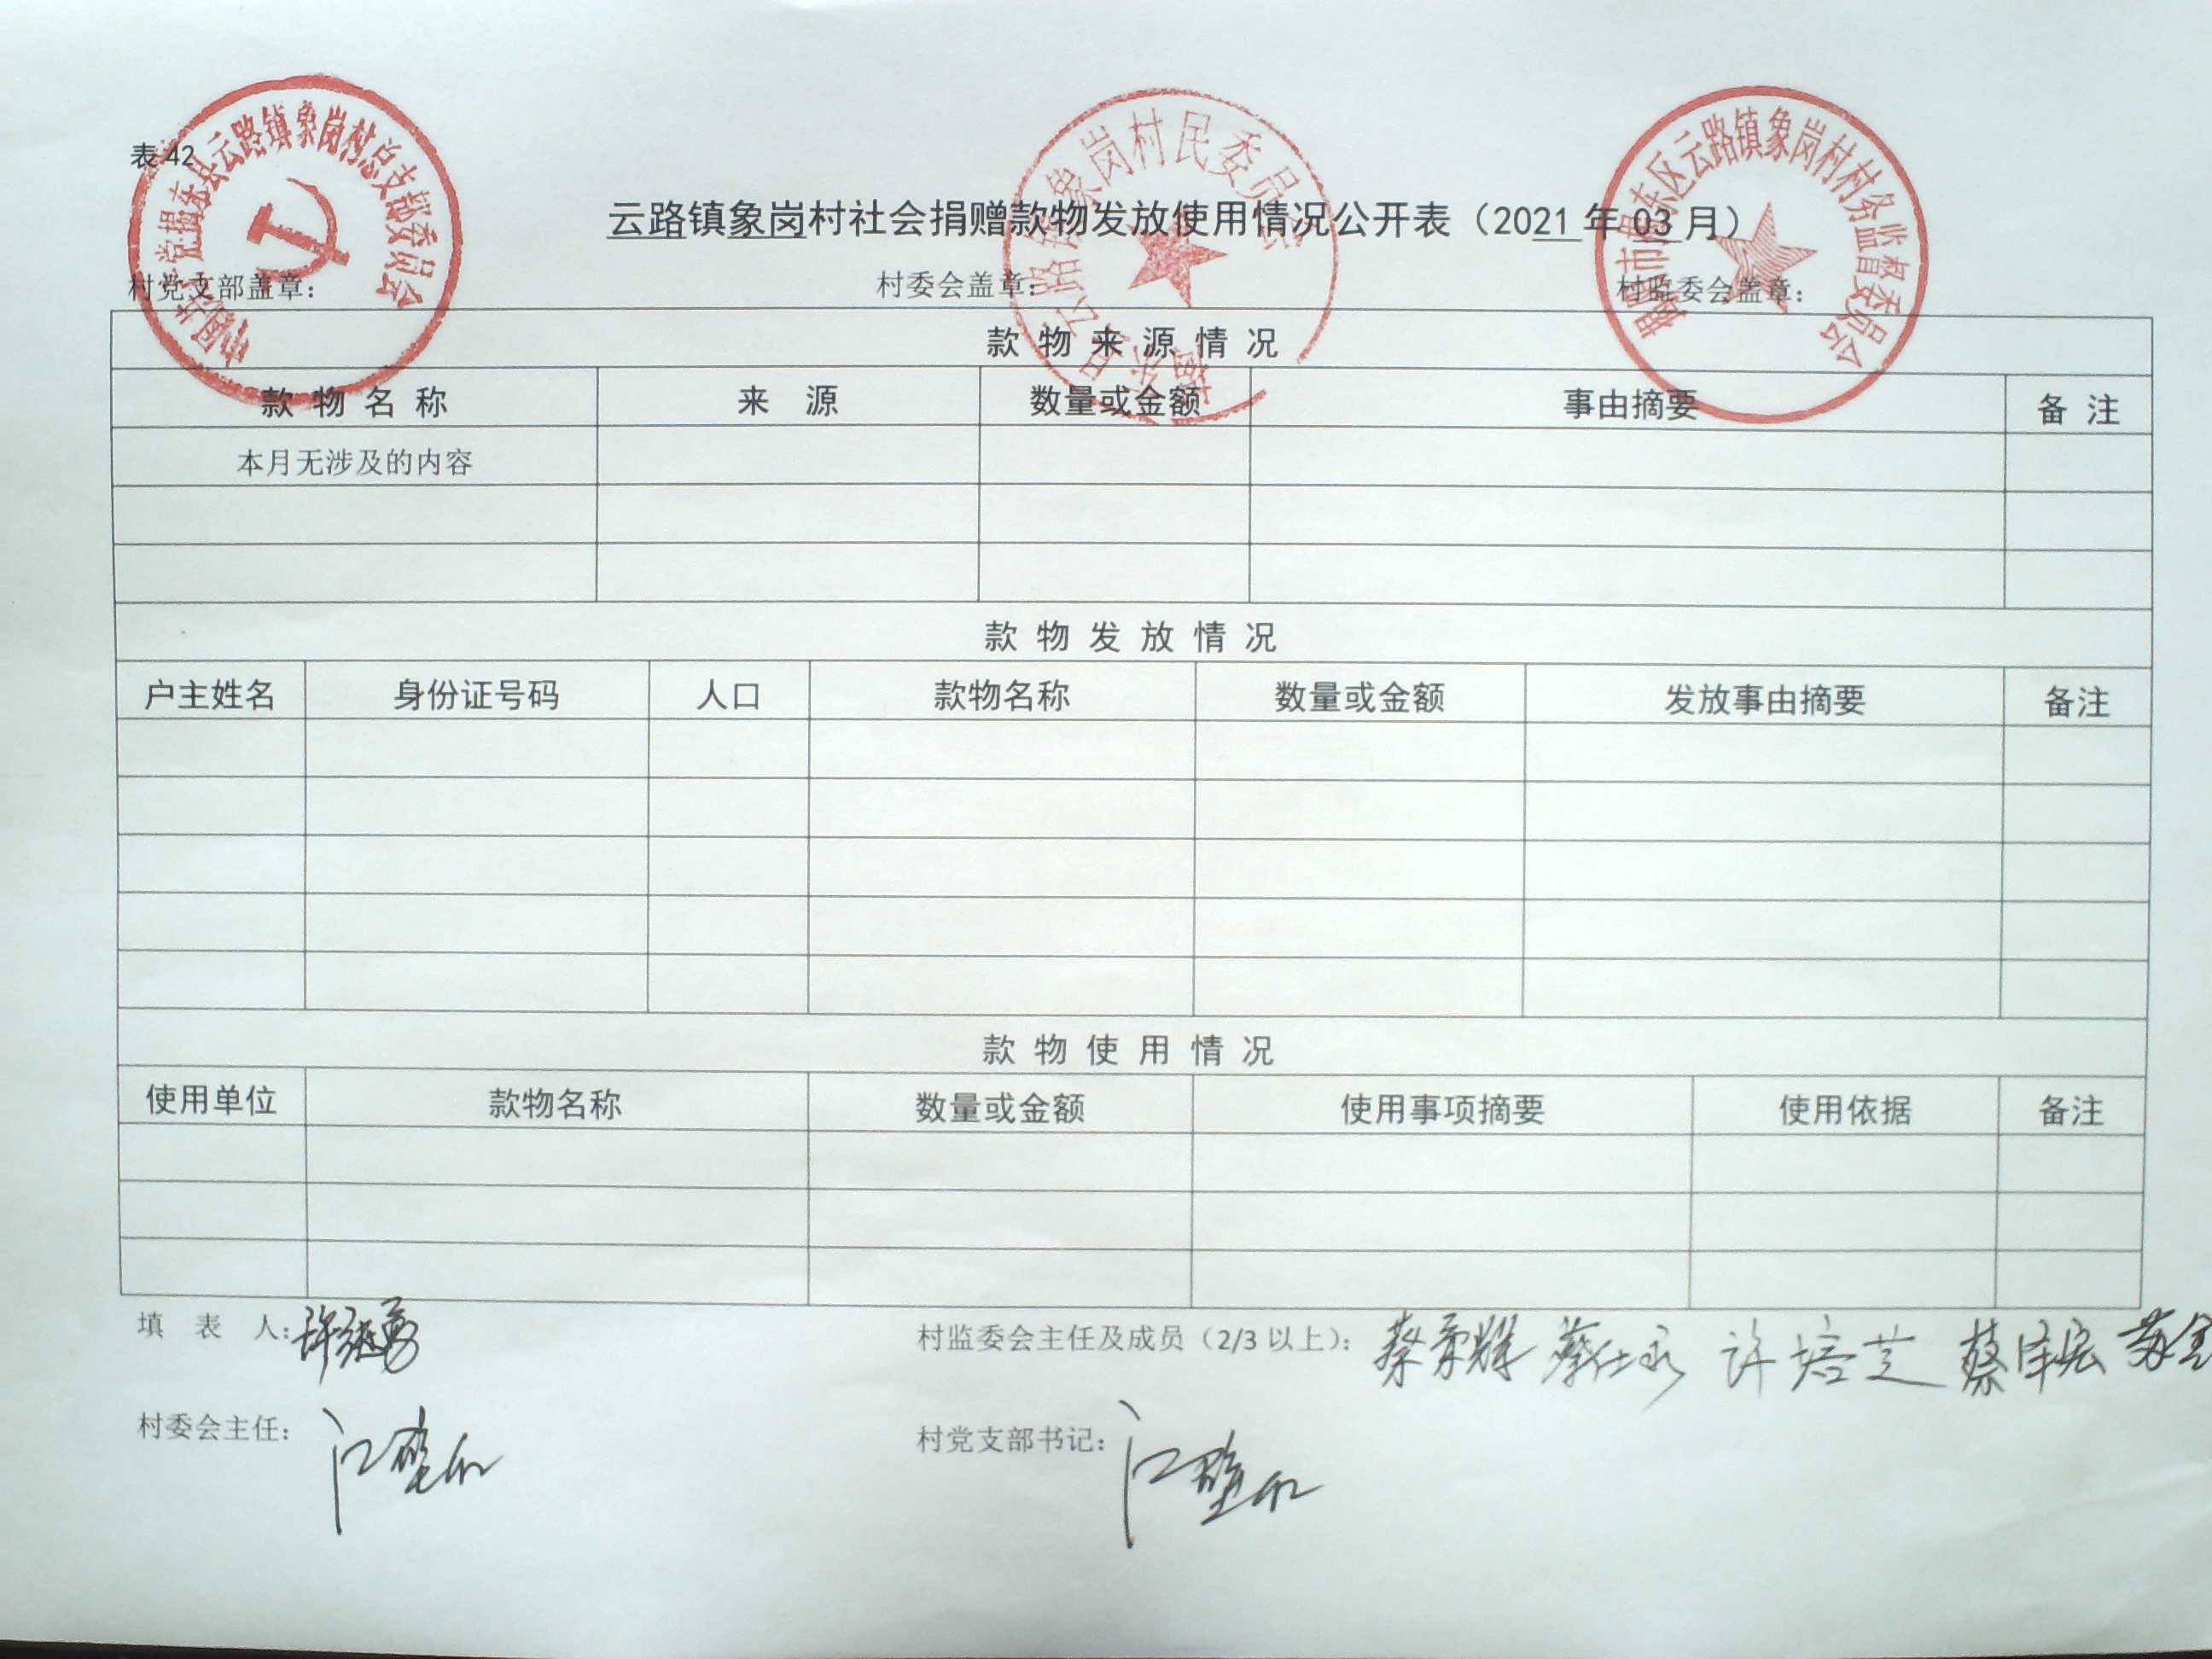 表 42
云路镇象岗村社会捐赠款物发放使用情况公开表（2021 年 03 月）
村党支部盖章： 村委会盖章： 村监委会盖章：
中国共产党揭东县云路镇象岗村总支部委员会
云路镇象岗村民委员会
揭阳市揭东区云路镇象岗村村务监督委员会
款 物 来 源 情 况
款 物 名 称 来 源 数量或金额 事由摘要 备 注
本月无涉及的内容
款 物 发 放 情 况
户主姓名 身份证号码 人口 款物名称 数量或金额 发放事由摘要 备注
款 物 使 用 情 况
使用单位 款物名称 数量或金额 使用事项摘要 使用依据 备注
填 表 人： 村监委会主任及成员（2/3 以上）： 许培芝
村委会主任： 村党支部书记：